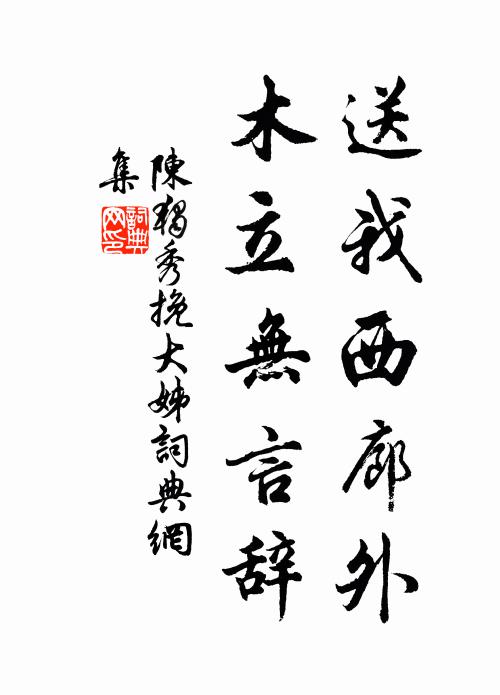 送我西廊外
木立無言辞
陳獨秀挽大姊詞典網
集
詞典
网印